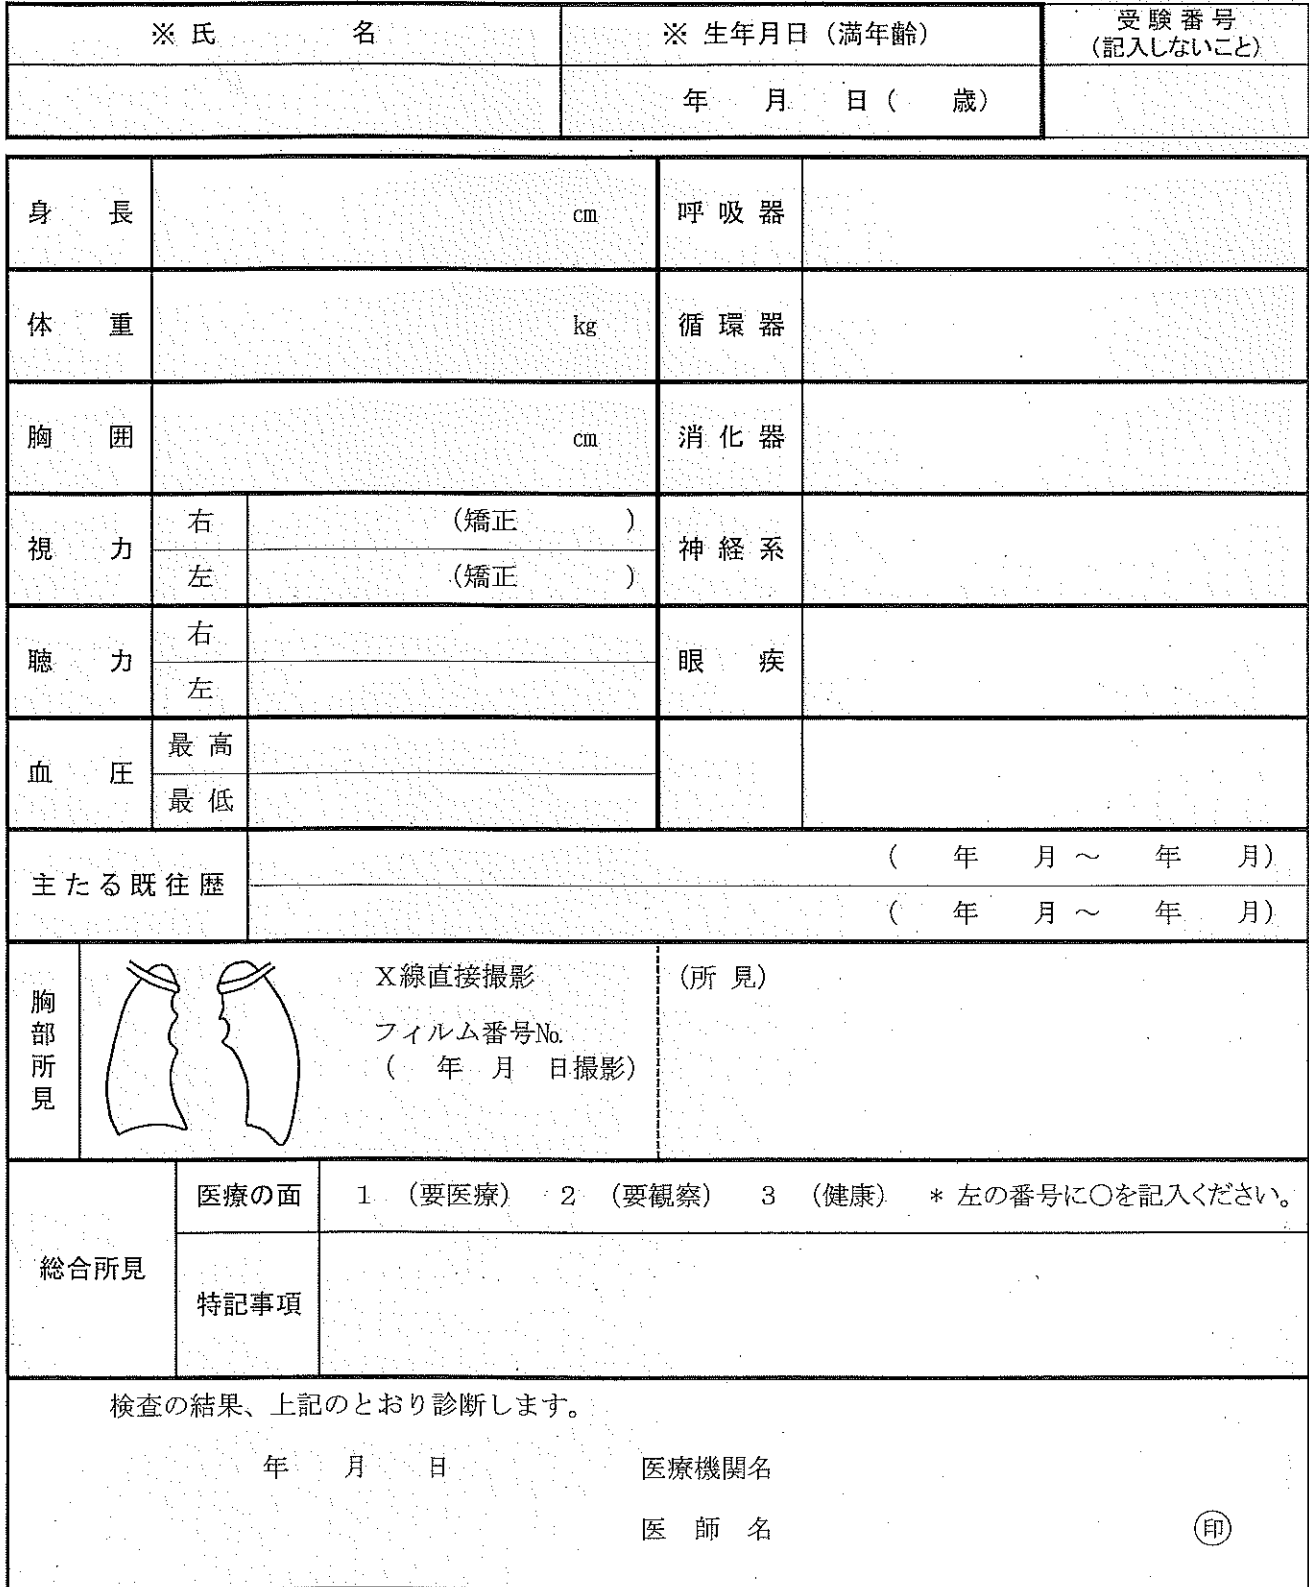 ※ 氏 名 ※ 生年月日（満年齢） 受験番号
（記入しないこと）
年 月 日（ 歳）
身 長 cm 呼吸器
体 重 kg 循環器
胸 囲 cm 消化器
視 力 右 （矯正 ） 神経系
左 （矯正 ）
聴 力 右 眼 疾
左
血 圧 最高
最低
主たる既往歴 （ 年 月 ～ 年 月）
（ 年 月 ～ 年 月）
胸部所見 X線直接撮影 （所 見）
フィルム番号№
（ 年 月 日撮影）
総合所見 医療の面 1 （要医療） 2 （要観察） 3 （健康） ＊左の番号に○を記入ください。
特記事項
検査の結果、上記のとおり診断します。
年 月 日 医療機関名
医 師 名 ㊞